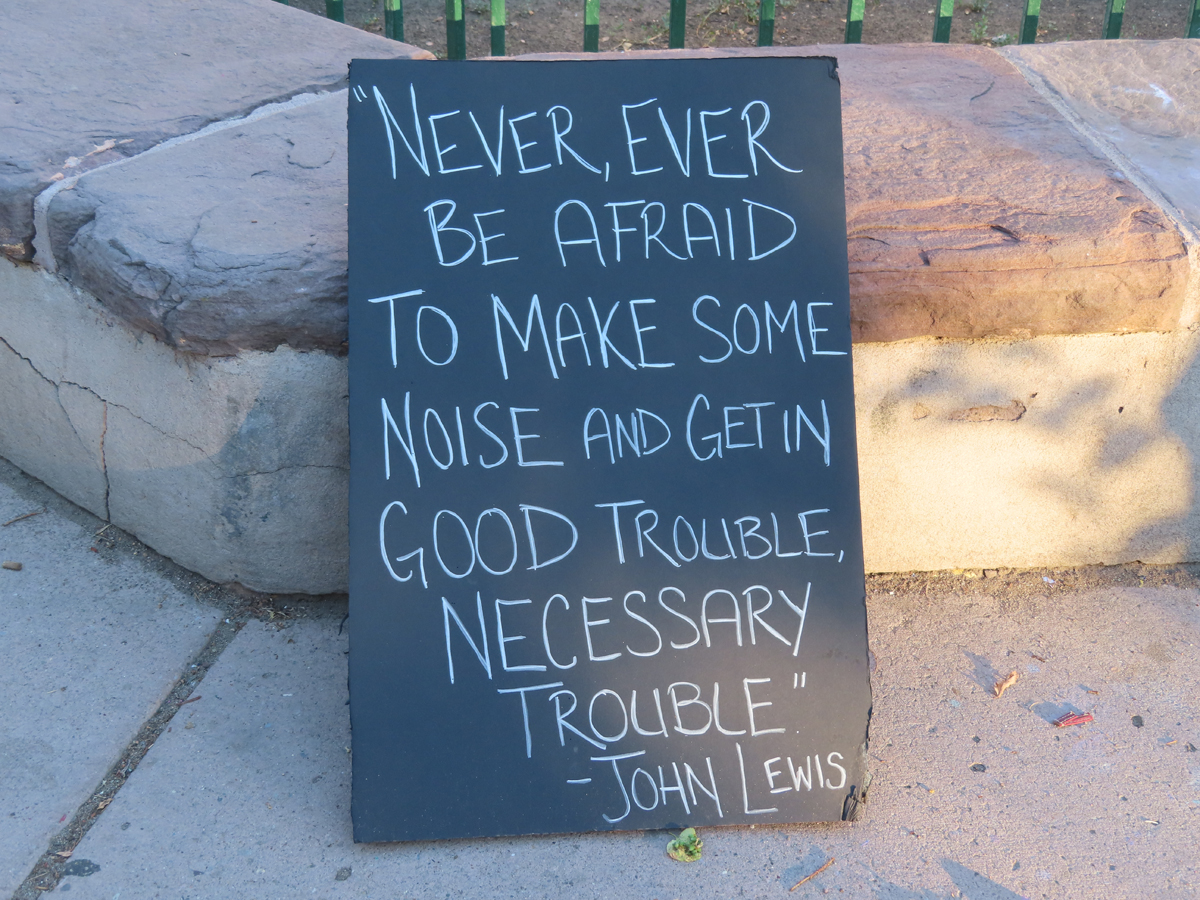 "NEVER, EVER
BE AFRAID
TO MAKE SOME
NOISE AND GET IN
GOOD TROUBLE,
NECESSARY
TROUBLE."
- JOHN LEWIS